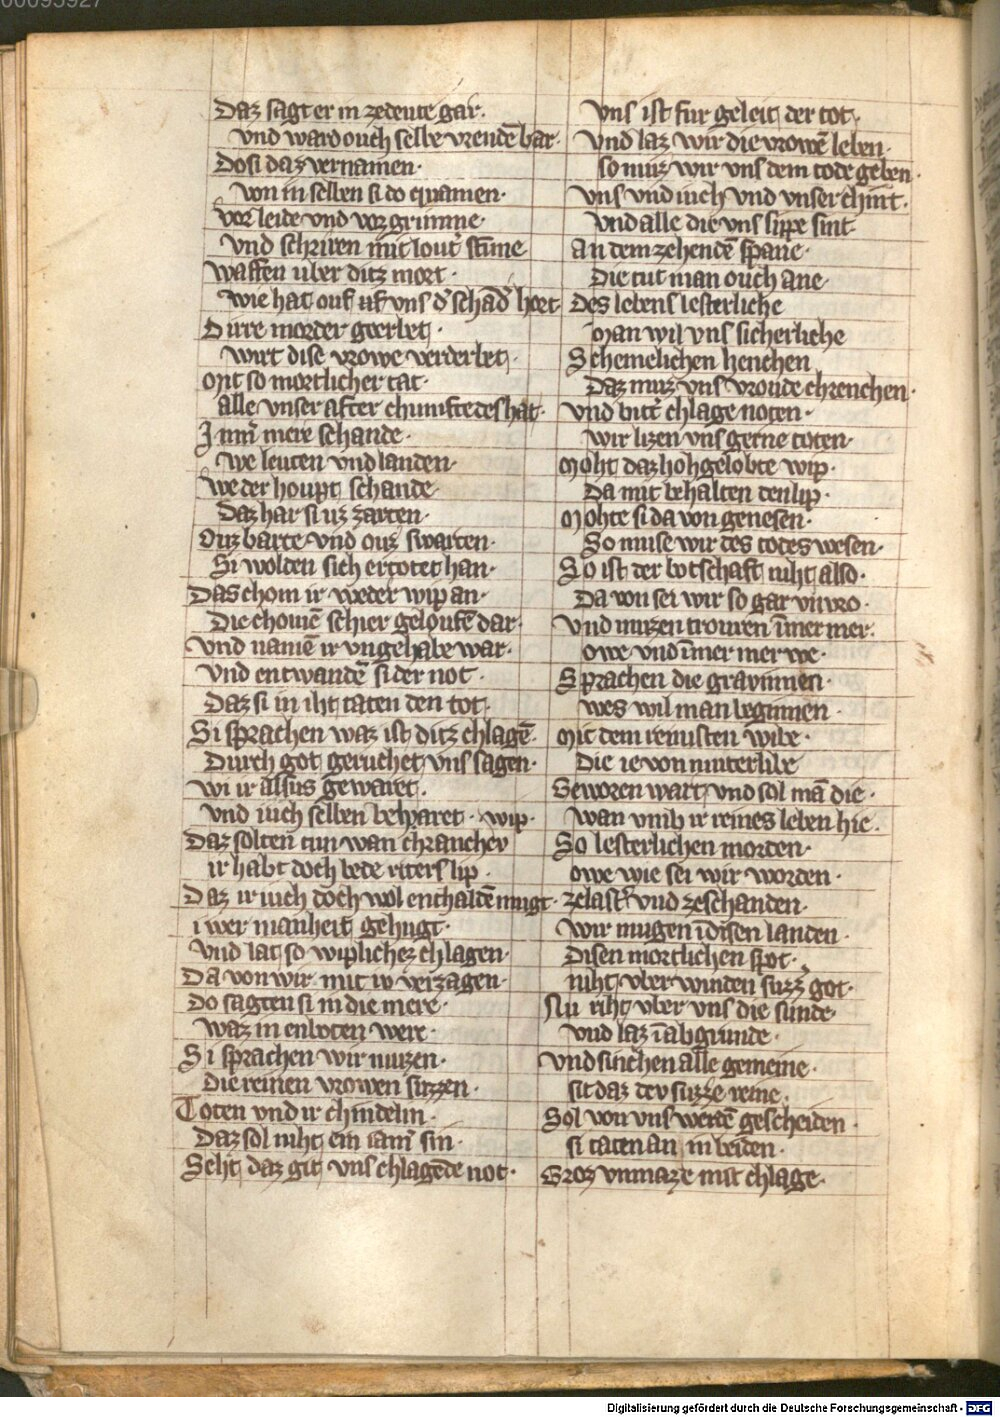 00095927
Daz sagt er in zedeute gar·
Vnd ward ouch selbe vrende bar·
Do si daz vernamen·
von in selben si do quamen·
Vor leide vnd vor grimme·
Vnd schriren mit lout' stime
Waffen uber ditz mort·
wie hat ouf vns d' schad' hort
Dirre morder gwerbet·
wirt dise vrowe verderbet·
Mit so mortlicher tat·
alle vnser after chumfte des hat·
Imm' mere schande·
we leuten vnd landen·
We der houpt schande·
Daz har si uz zarten·
Ouz barte vnd ouz swarten·
Si wolden sich ertotet han·
Das chom ir weder wip an·
Die chomē schier geloufē dar·
Vnd namē ir vngehabe war·
Vnd entwandē si der not·
Daz si in iht taten den tot·
Si sprachen waz ist ditz chlagē·
Durch got geruchet vns sagen·
wi ir alsus gewaret·
Vnd iuch selben beharet· wip·
Daz solten tun wan chrancheu
ir habt doch bede riters lip·
Daz ir iuch doch wol enthaldē mugt·
iwer manheit gehugt·
Vnd lat so wiplichez chlagen·
Da von wir mit iv verzagen·
Do sagten si in die mere·
waz in enboten were·
Si sprachen wir muzen·
Die reinen vrowen suzzen·
Toten vnd ir chindelin·
Daz sol niht ein iam' sin·
Seht daz git vns chlagēde not·
Vns ist fur geleit der tot·
Vnd laz wir die vrowē leben·
so muz wir vns dem tode geben·
Vns vnd iuch vnd vnser chint·
Vnd alle die vns sippe sint
An dem zehendē spane·
Die tut man ouch ane·
Des lebens lesterliche
Man wil vns sicherliche
Schemelichen henchen
Daz muz vns vroude chrenchen·
Vnd bit' chlage noten·
wir lizen vns gerne toten·
Moht daz hohgelobte wip·
Da mit behalten den lip·
Mohte si da von genesen·
So muse wir des todes wesen·
So ist der botschaft niht also·
Da von sei wir so gar vnvro·
Vnd muzen trouren īmer mer·
owe vnd īmer mer we·
Sprachen die gravinnen·
wes wil man beginnen·
Mit dem reinisten wibe·
Die ie von muterlibe
Geworen wart vnd sol mā die·
wan vmb ir reines leben hie·
So lesterlichen morden·
owe wie sei wir worden·
zelast' vnd zeschanden·
wir mugen ī disen landen·
Disen mortlichen spot·
niht vber winden suzz' got·
Nu riht vber vns die sunde·
vnd laz ī abgrunde·
Vnd sinchen alle gemeine·
sit daz dev suzze reine·
Sol von vns werdē gescheiden·
si taten an in beiden·
Groz vnmaze mit chlage·
Digitalisierung gefördert durch die Deutsche Forschungsgemeinschaft - DFG